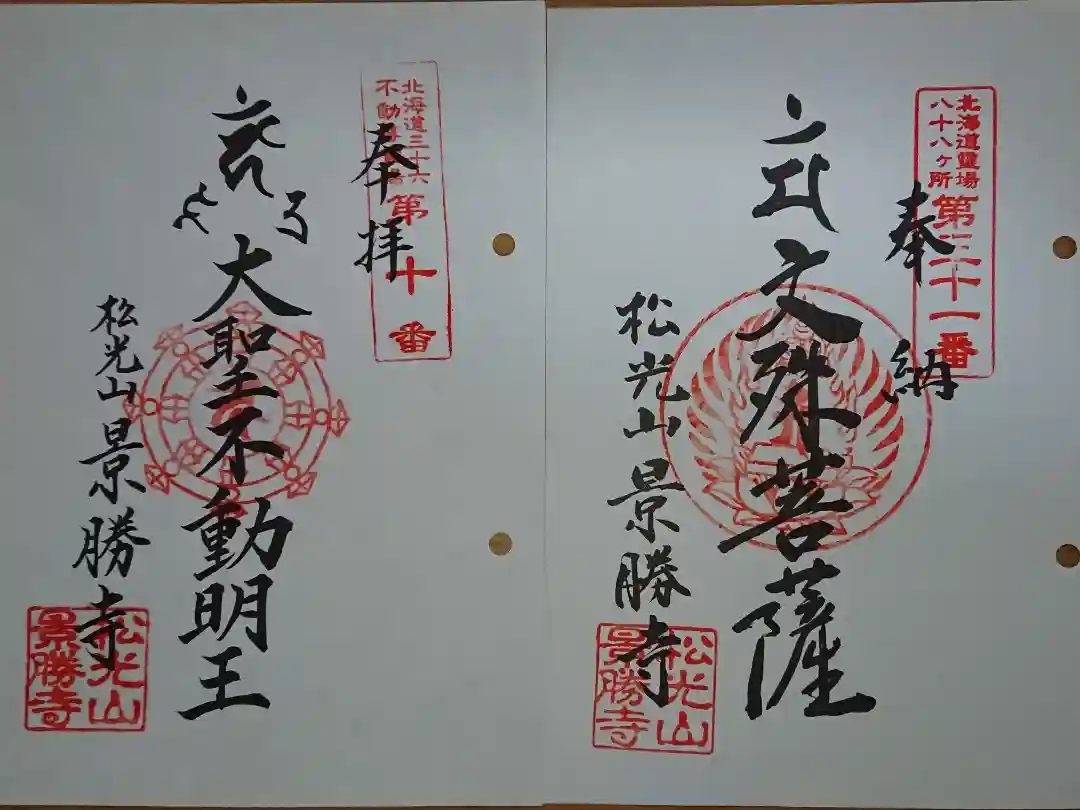 北海道霊場
八十八ヶ所
第三十一番
奉納
文殊菩薩
松光山景勝寺
松光山
景勝寺
北海道三十六
不動
第十番
奉拝
大聖不動明王
松光山景勝寺
松光山
景勝寺